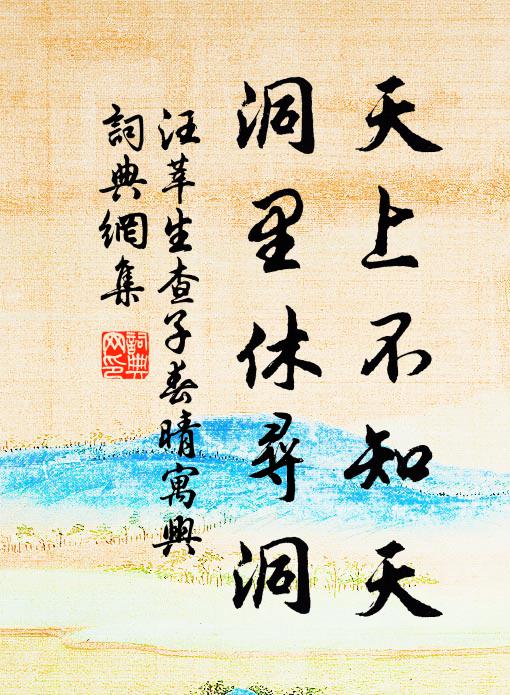 天上不知天
洞里休尋洞
汪莘生查子春晴寓興
詞典網集
詞典
网印